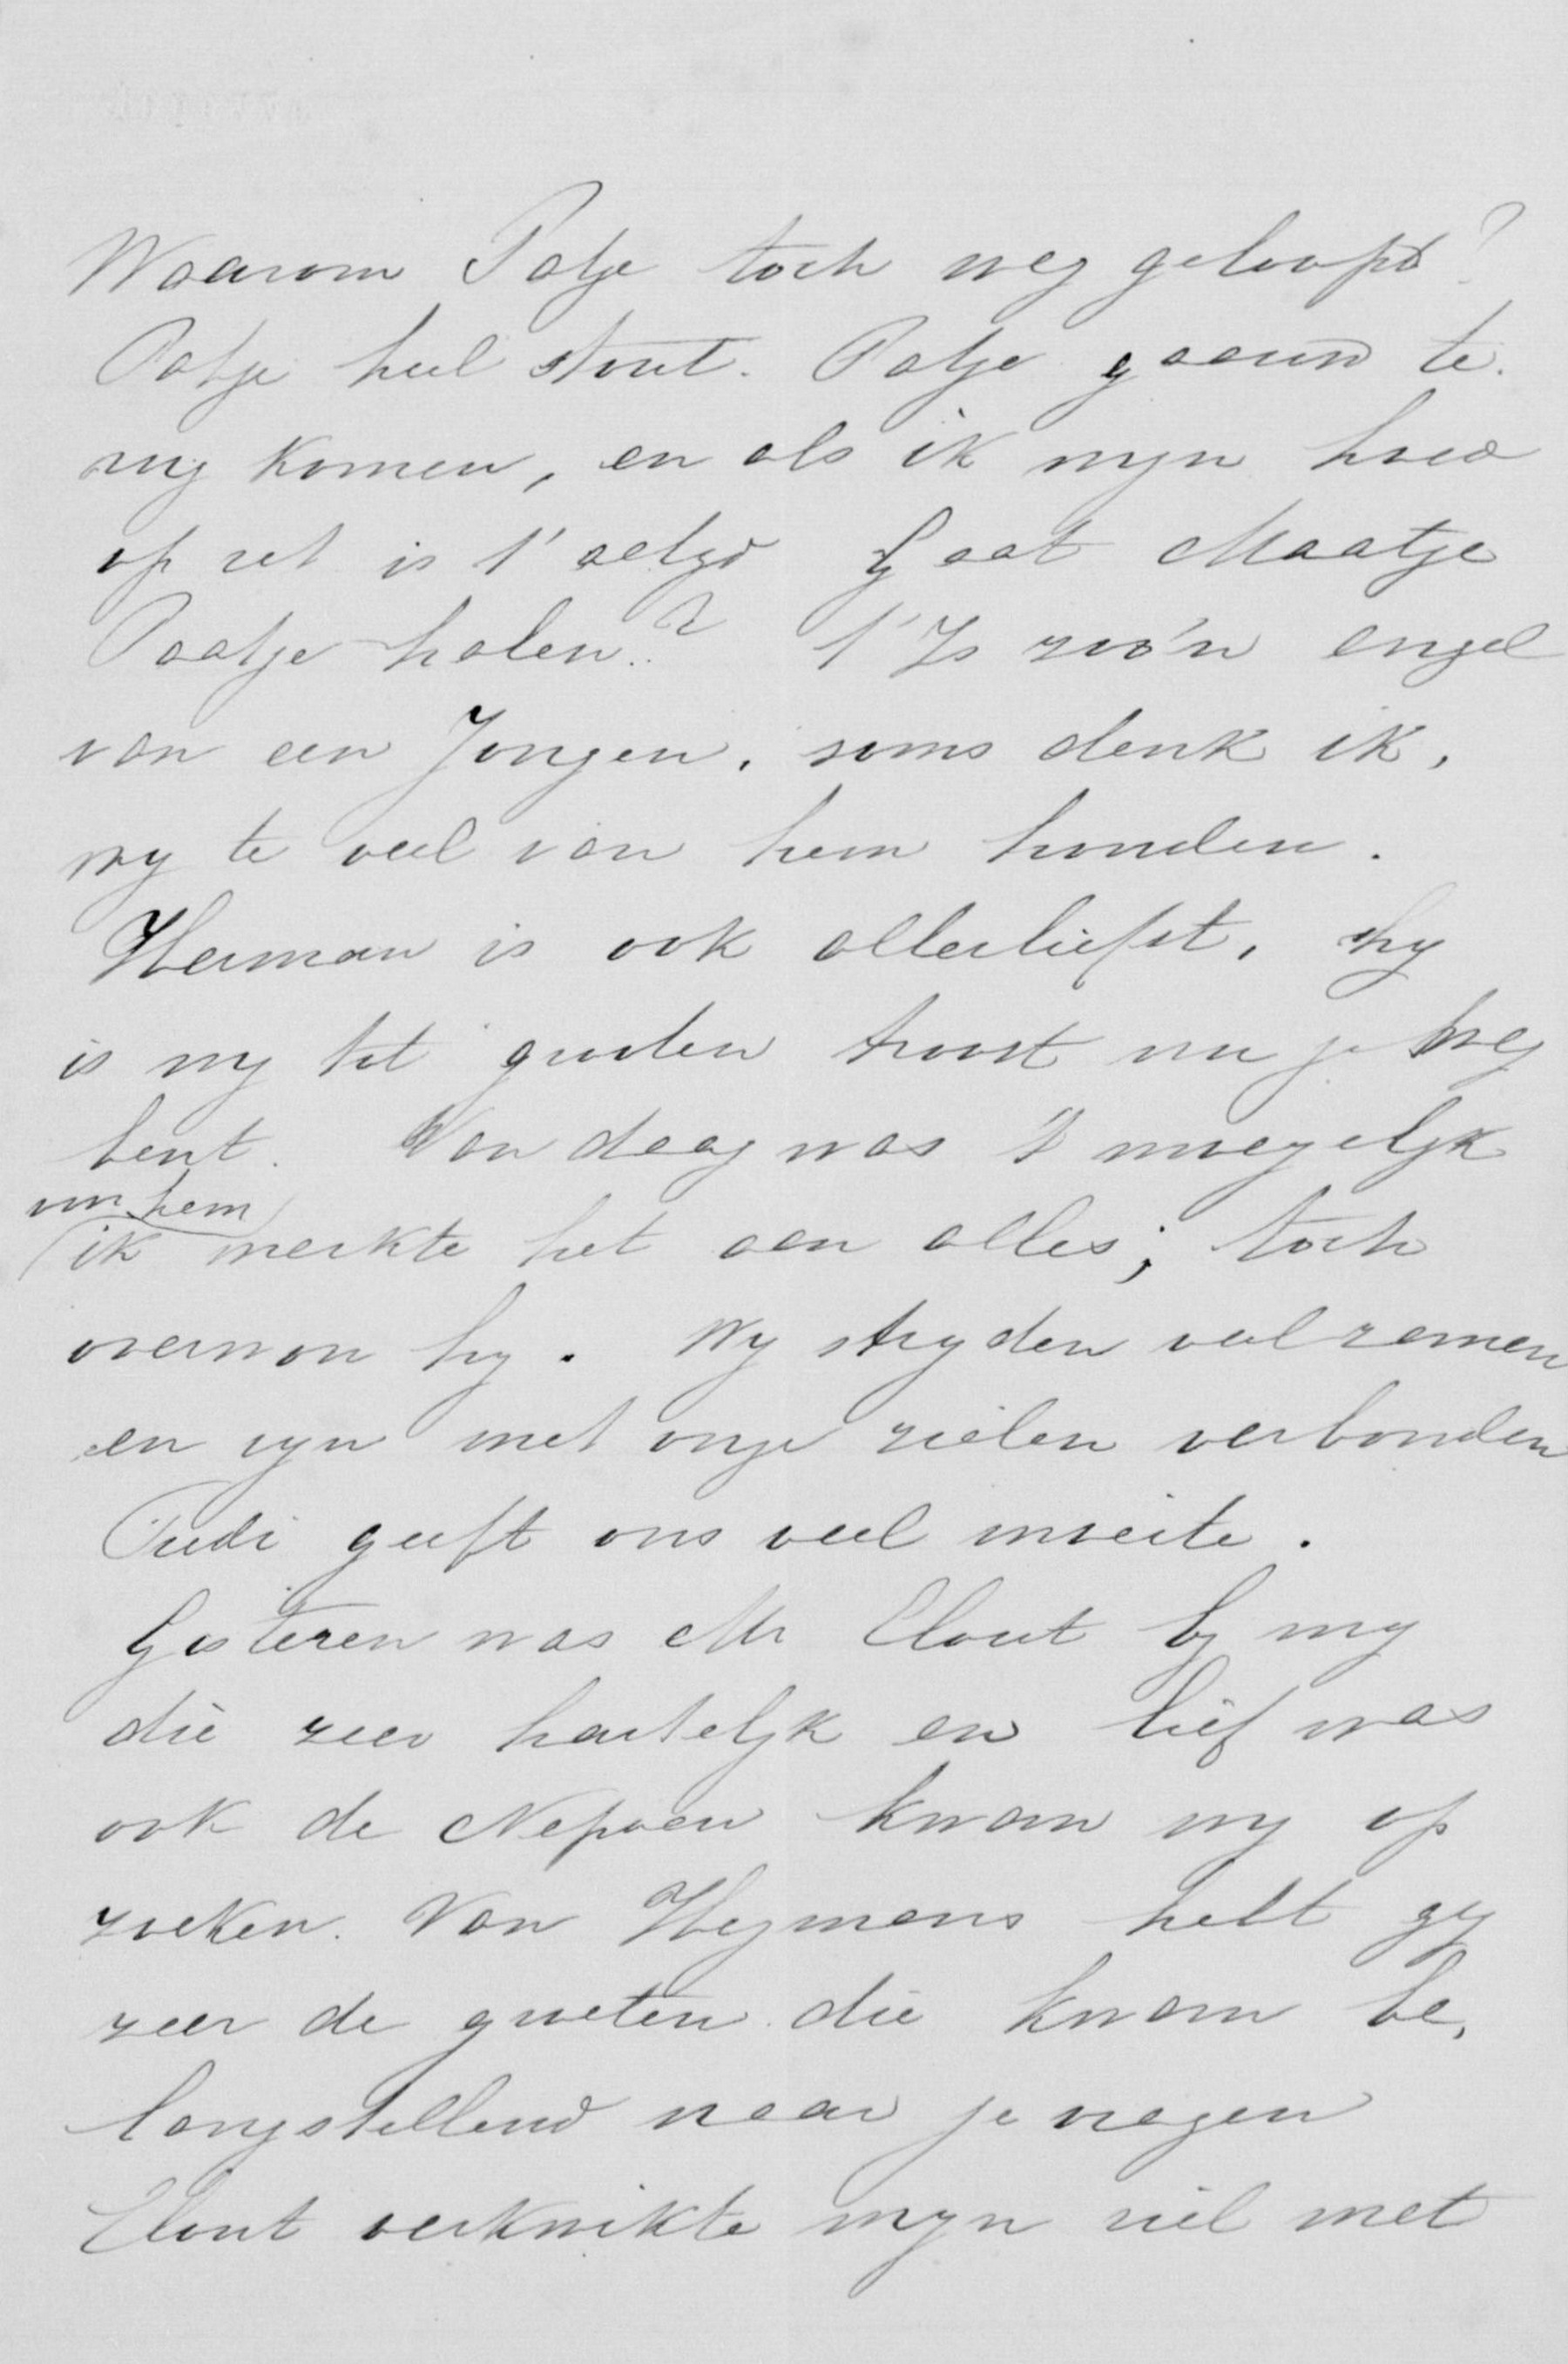 Waarom Patje toch weg geloopt?
Patje heel stout. Patje gaauw te
rug komen, en als ik myn hoed
op zet is 't altyd Gaat Maatje
Paatje halen? 't Is zoo'n engel
van een Jongen. soms denk ik,
wy te veel van hem houden.
Herman is ook allerliefst, hy
is my tot grooten troost nu je weg
bent. Van daag was 't moeyelyk
voor hem
ik merkte het aan alles; toch
overwon hy. Wy stryden veel zamen
en zyn met onze zielen verbonden
Tudi geeft ons veel moeite.
Gisteren was Mr Elout by my
die zeer hartelyk en lief was
ook de Nepveu kwam my op
zoeken. Van Heymans hebt gy
zeer de groeten die kwam be,
langstellend naar je vragen
Elout verkwikte myn ziel met